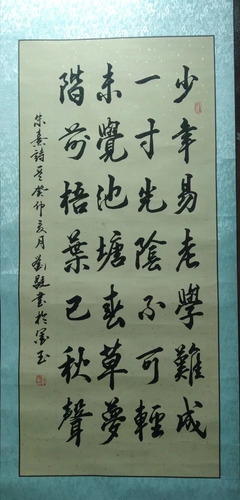 少年易老學難成
一寸光陰不可輕
未覺池塘春草夢
階前梧葉已秋聲
朱熹詩 癸卯亥月 書於